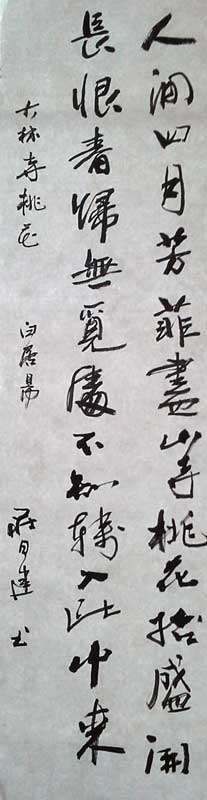 人間四月芳菲盡山寺桃花始盛開
長恨春歸無覓處不知轉入此中來
大林寺桃花 白居易 日建书